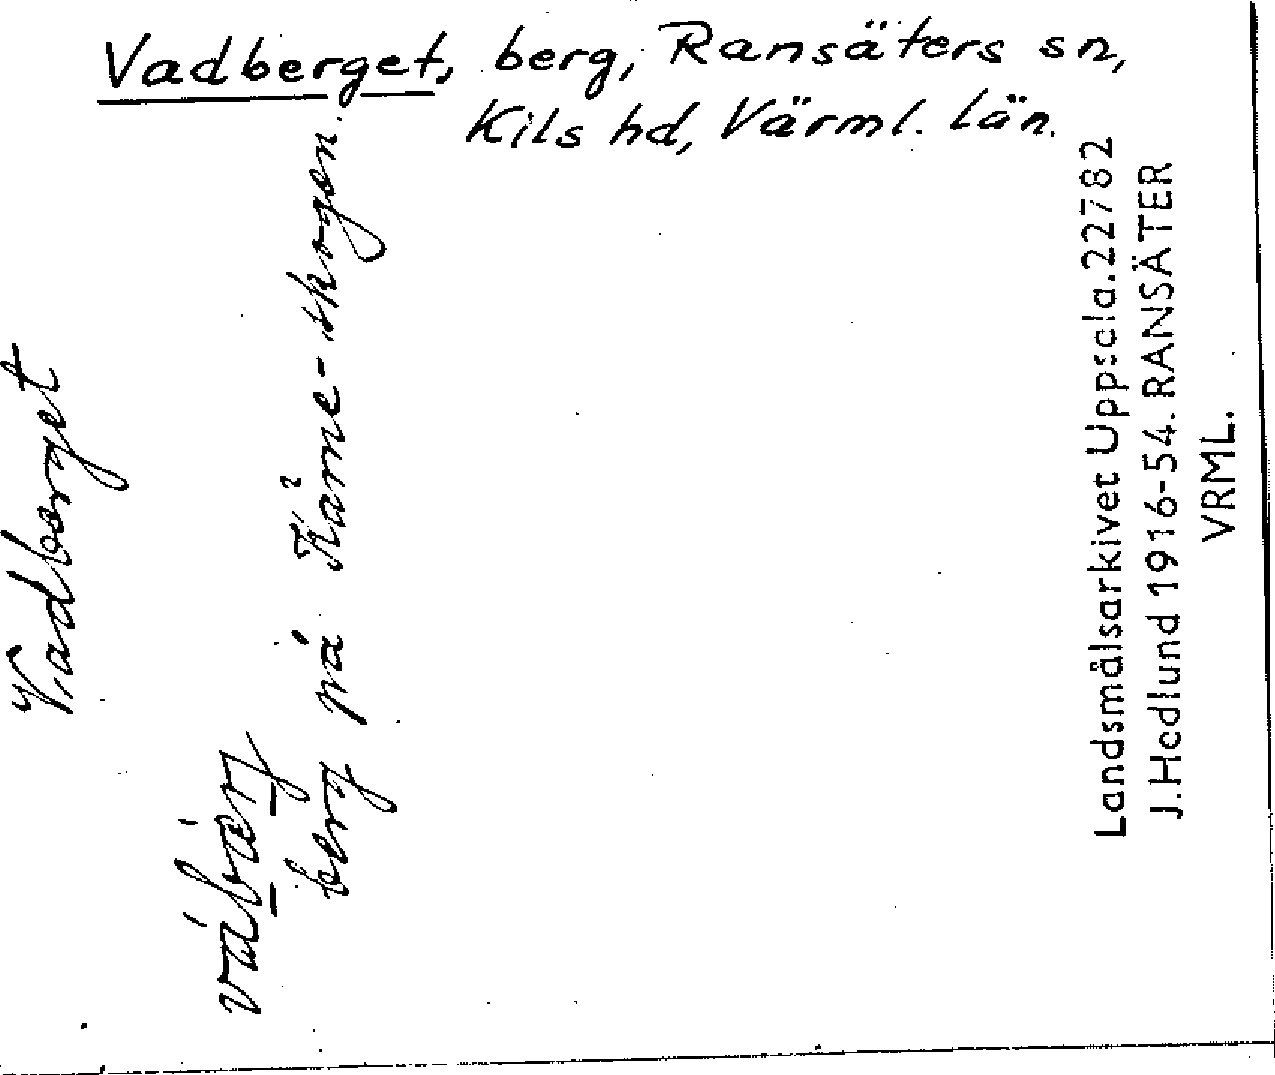 Vadberget, berg, Ransäters sn,
Kils hd, Värml. län.
Vadberget
berg på skogen.
Landsmålsarkivet Uppsala. 22782
J. Hedlund 1916-54. RANSÄTER
VRML.